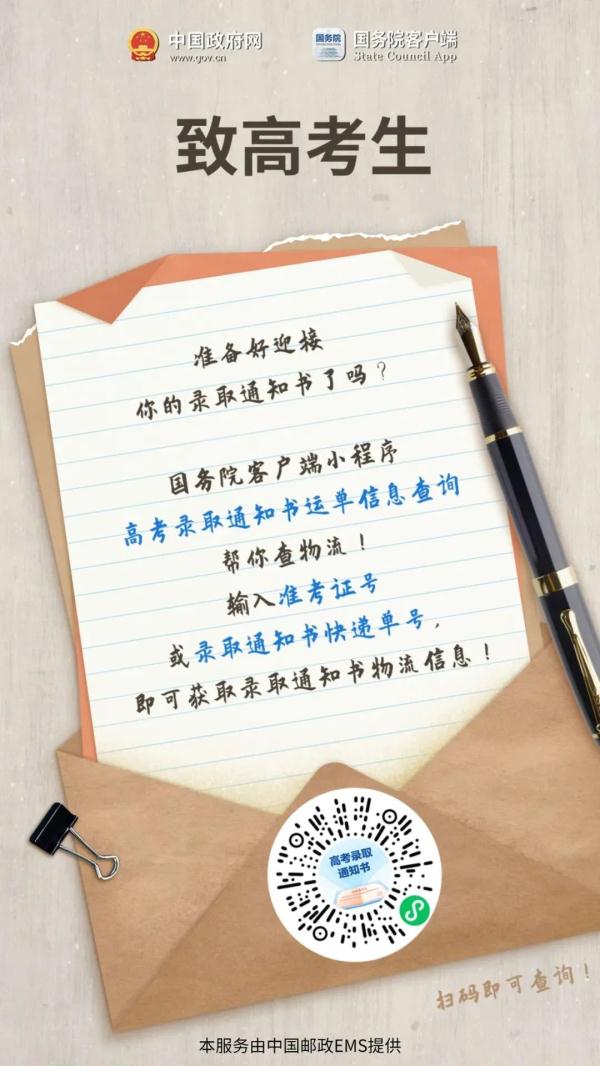 中国政府网
www.gov.cn
国务院客户端
State Council App
致高考生
准备好迎接
你的录取通知书了吗？
国务院客户端小程序
高考录取通知书运单信息查询
帮你查物流！
输入准考证号
或录取通知书快递单号，
即可获取录取通知书物流信息！
高考录取
通知书
扫码即可查询！
本服务由中国邮政EMS提供